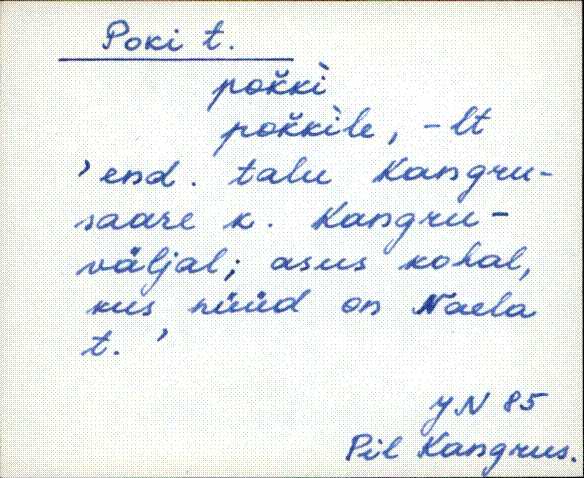 Poki t.
pok̆k̆ì
pok̆k̆ìle, -lt
’end. talu Kangru-
saare k. Kangru-
väljal; asus kohal,
kus nüüd on Naela
t.’
YN 85
Pil Kangrus.